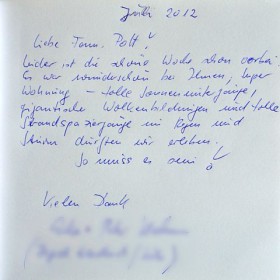 Juli 2012
Liebe Fam. Pott!
Leider ist die schöne Woche schon vorbei.
Es war wunderschön bei Ihnen, super
Wohnung – tolle Sonnenuntergänge,
gigantische Wolkenbildungen und tolle
Strandspaziergänge im Regen und
Sturm durften wir erleben.
So muss es sein!
Vielen Dank